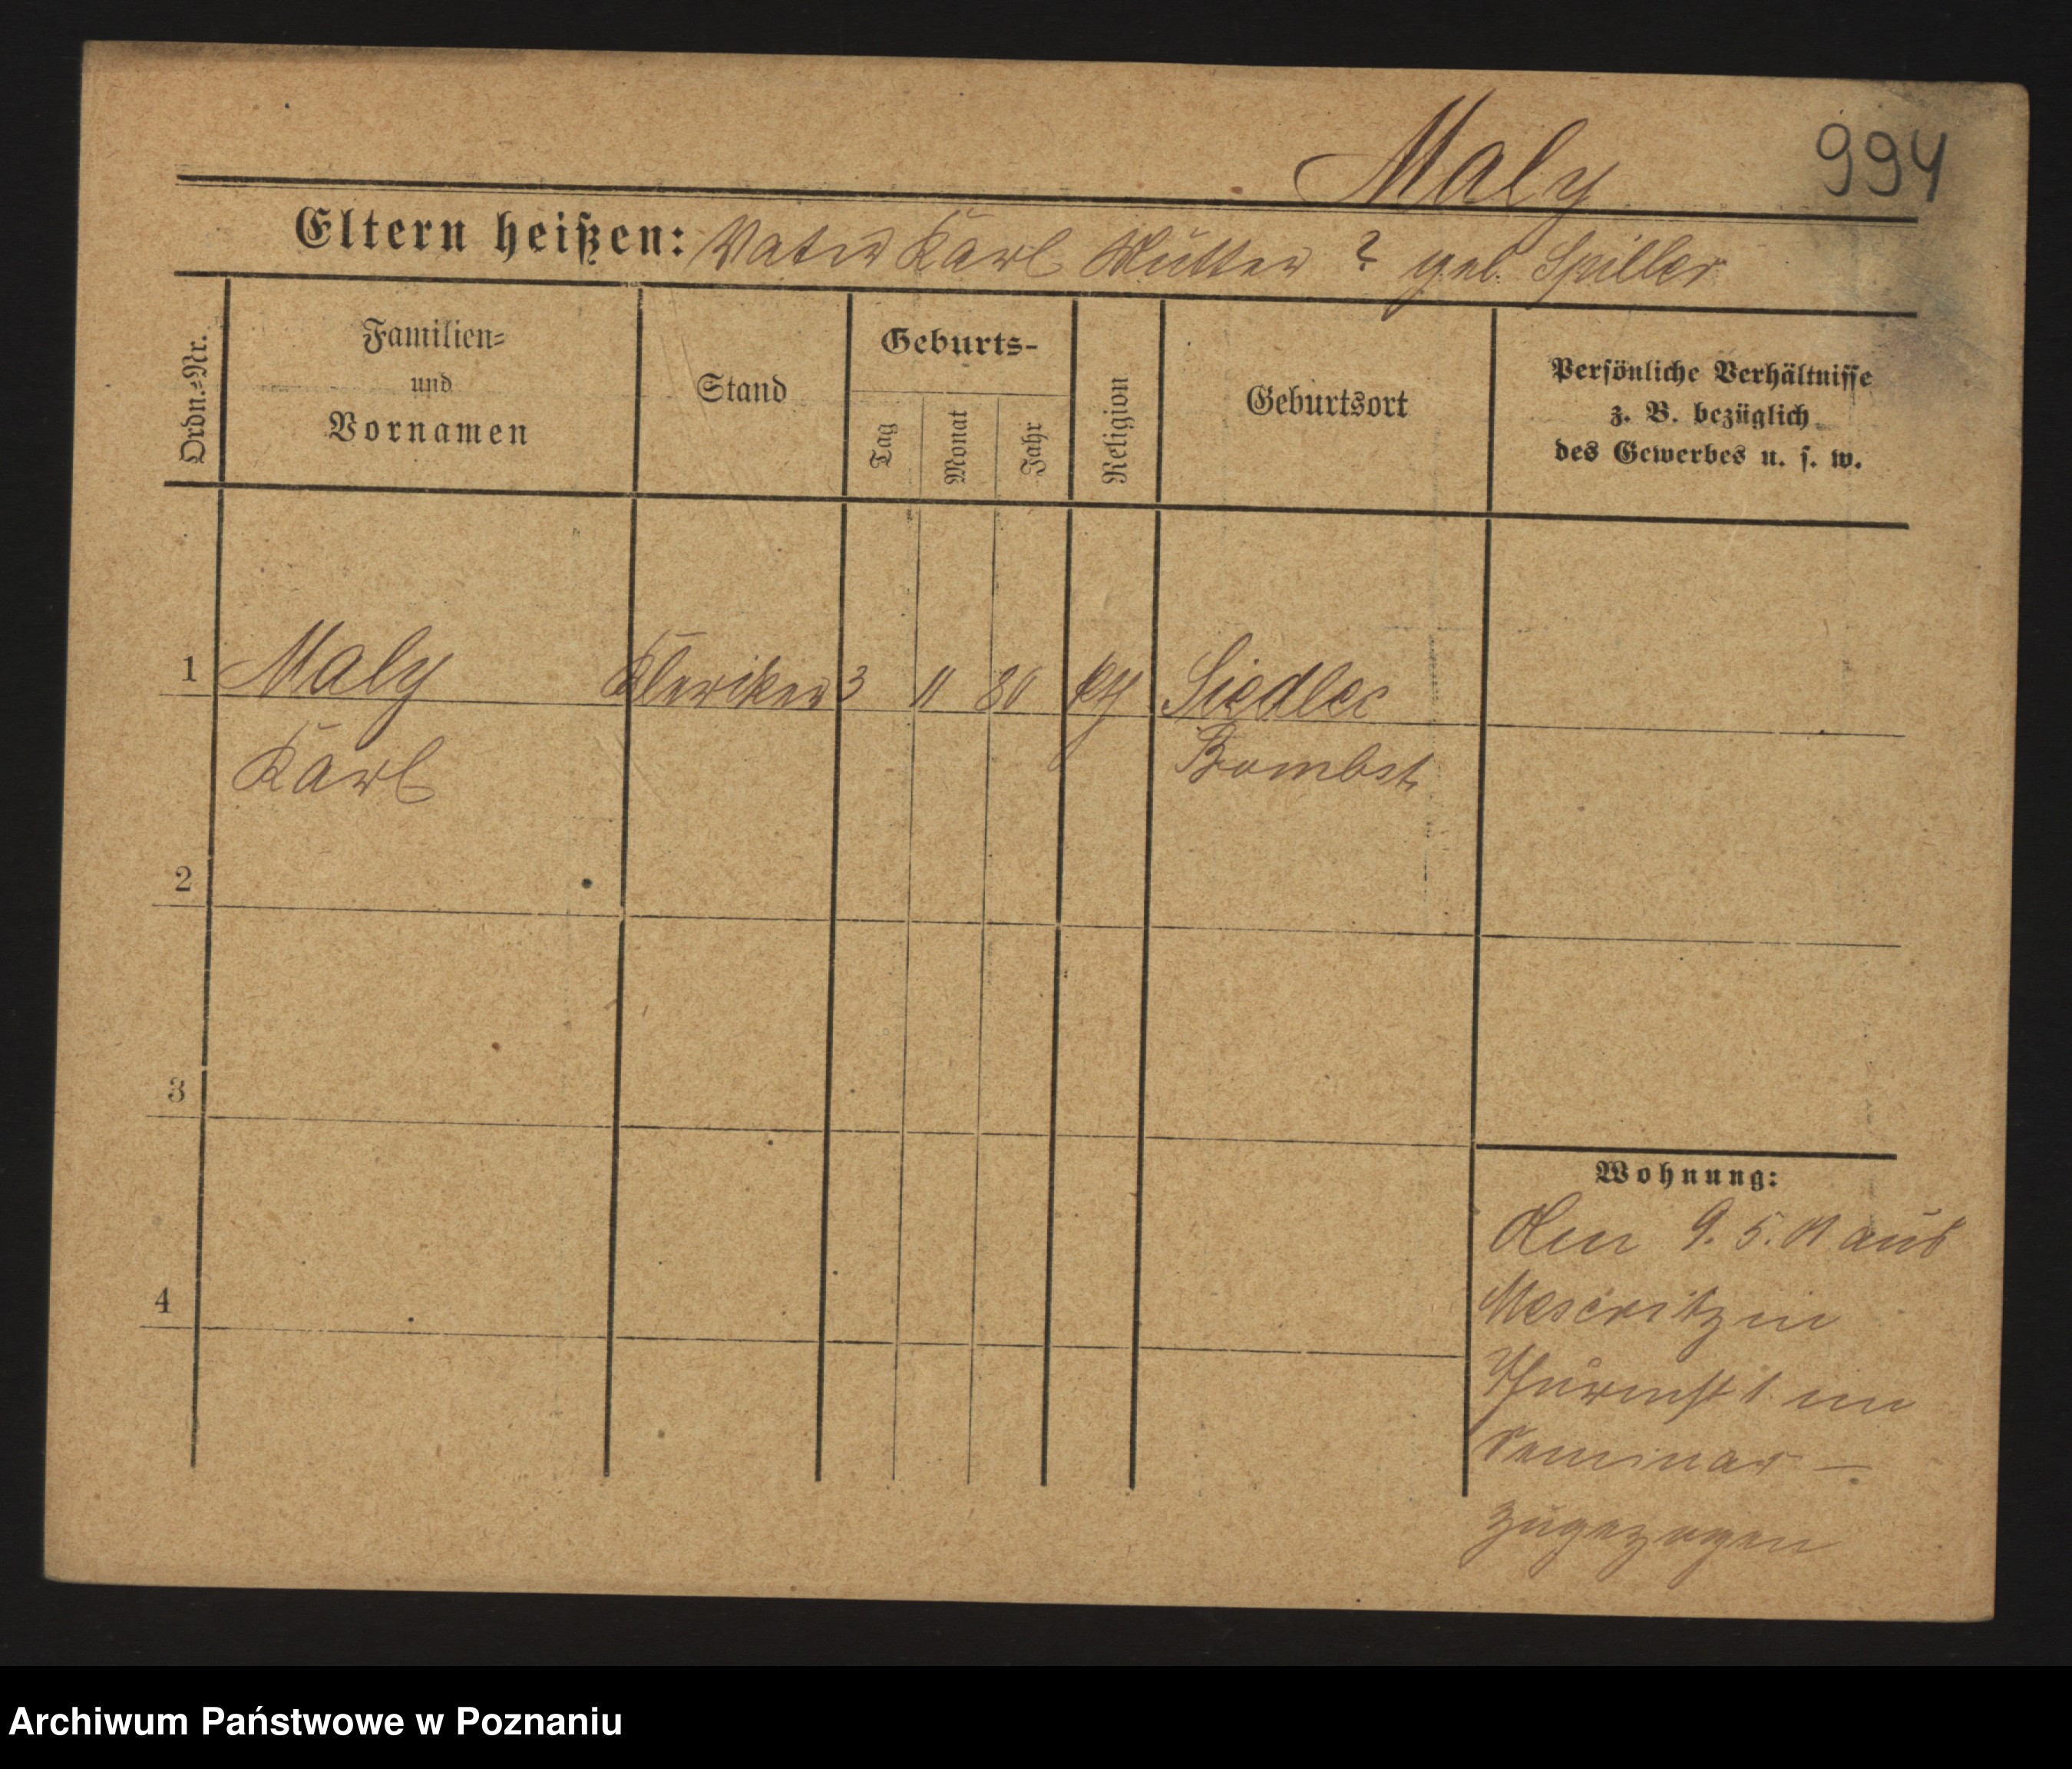 Maly 994
Eltern heißen: Vater Karl Mutter ? geb. Spiller
Ordn.=Nr.
Familien=
und
Vornamen
Stand
Geburts-
Tag
Monat
Jahr
Religion
Geburtsort
Persönliche Verhältnisse
z. B. bezüglich
des Gewerbes u. s. w.
1 Maly Kleriker 3 11 80 Siedlec
Karl Bombst.
2
3
4
Wohnung:
Den 9. 5. 01 aus
Meseritz in
1 im
Seminar —
zugezogen
Archiwum Państwowe w Poznaniu